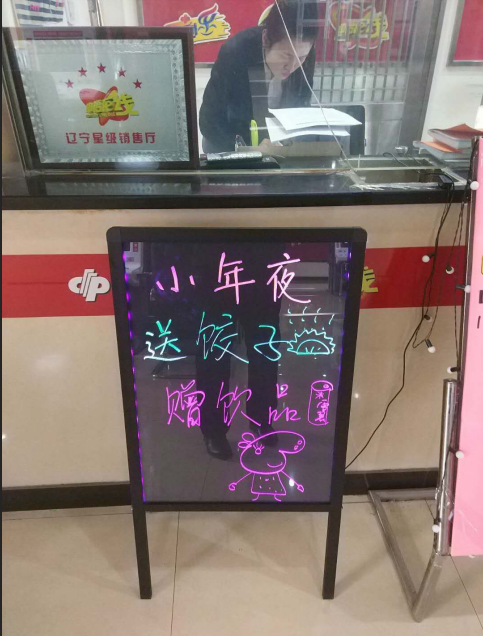 辽宁星级销售厅
小年夜
送饺子
赠饮品